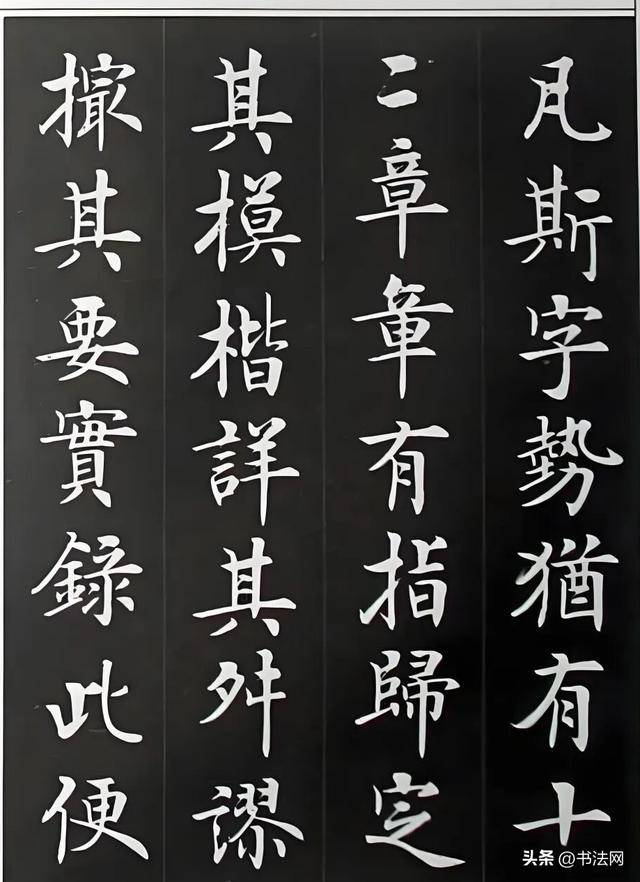 凡斯字勢猶有十
二章章有指歸定
其模楷詳其舛謬
撮其要實錄此便
头条 @书法网